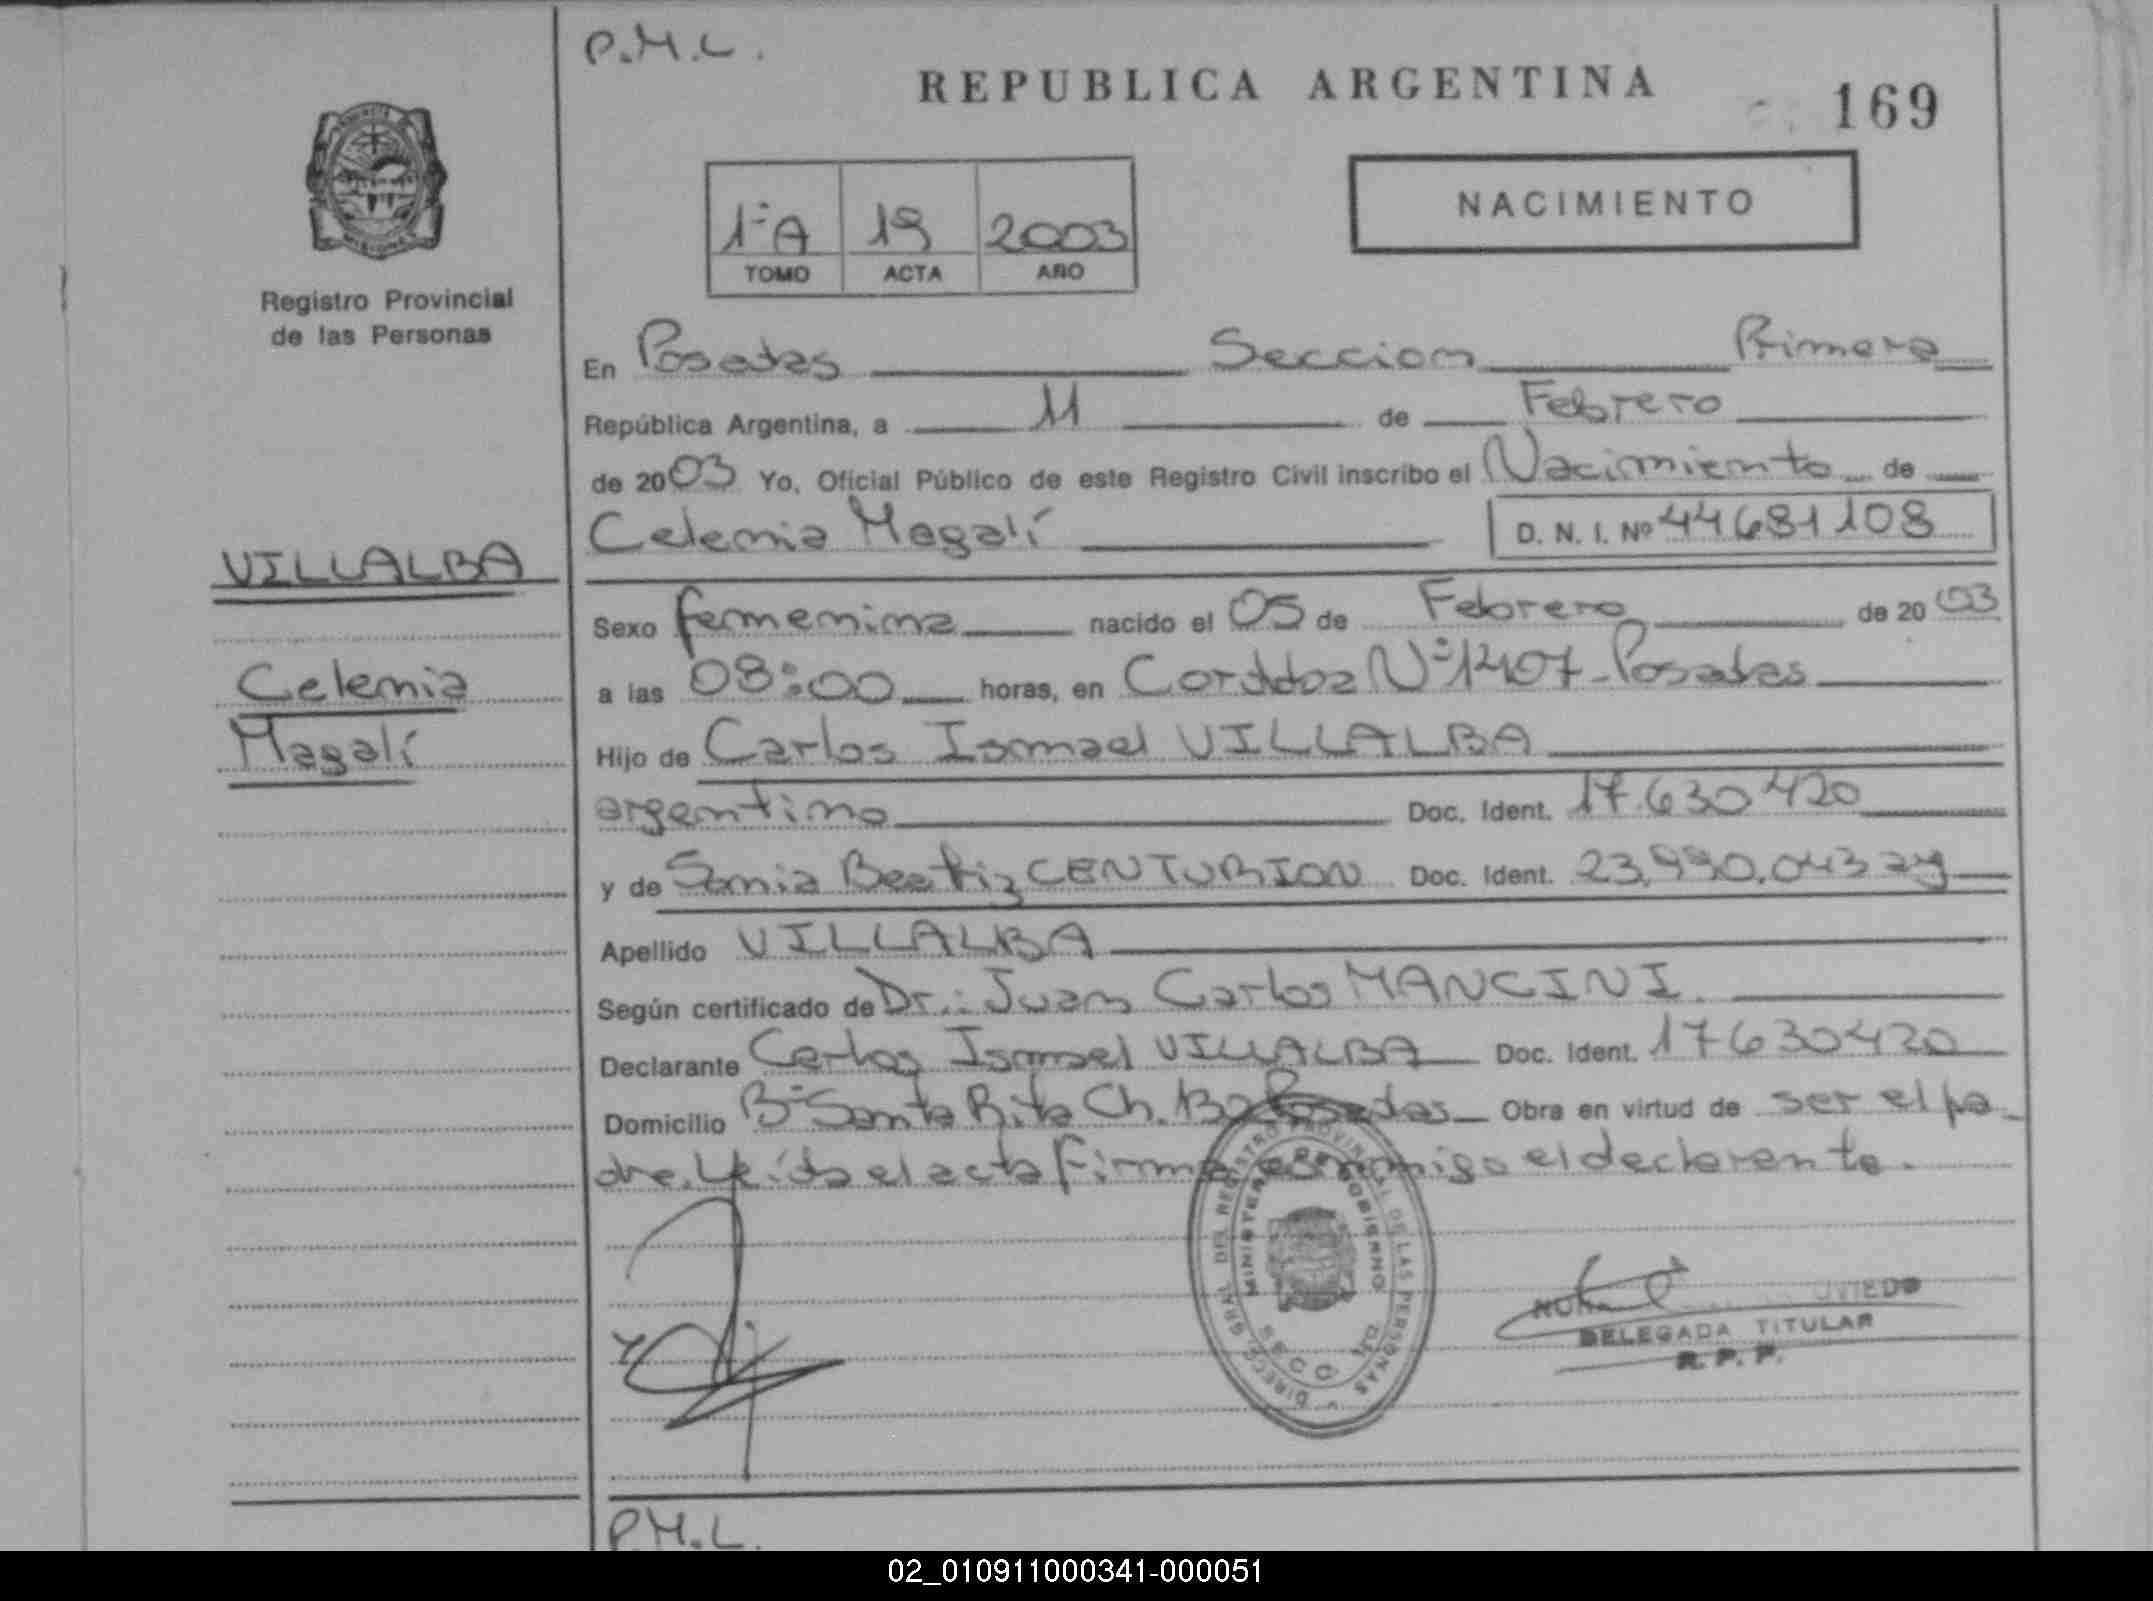 P.M.L.
REPUBLICA ARGENTINA
169
1ºA 19 2003
TOMO ACTA AÑO
NACIMIENTO
Registro Provincial
de las Personas
En Posadas Seccion Primera
República Argentina, a 11 de Febrero
de 2003 Yo, Oficial Público de este Registro Civil inscribo el Nacimiento de
Celenia Magalí D. N. I. Nº 44681108
VILLALBA
Celenia
Magalí
Sexo femenina nacido el 05 de Febrero de 2003
a las 08:00 horas, en Cordoba Nº 1407 - Posadas
Hijo de Carlos Ismael VILLALBA
argentino Doc. Ident. 17.630420
y de Sonia Beatriz CENTURION Doc. Ident. 23.990.043 arg
Apellido VILLALBA
Según certificado de Dr.: Juan Carlos MANCINI.
Declarante Carlos Ismael VILLALBA Doc. Ident. 17630420
Domicilio Bº Santa Rita Ch. Posadas Obra en virtud de ser el pa-
dre. Leída el acta firma conmigo el declarante.
DIRECC. GRAL. DEL REGISTRO PROVINCIAL DE LAS PERSONAS
MINISTERIO DE GOBIERNO
SECC.
OVIEDO
DELEGADA TITULAR
R. P. P.
P.M.L.
02_010911000341-000051